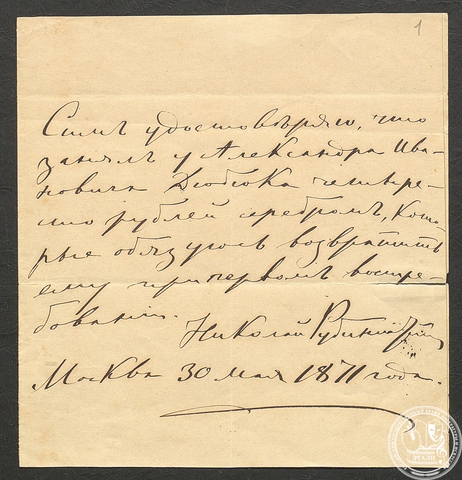 1
Симъ удостовѣряю, что
занялъ у Александра Ива-
новича Дюбюка четыре-
ста рублей серебромъ, кото-
рые обязуюсь возвратить
ему при первомъ востре-
бованіи.
Николай Рубинштейнъ
Москва 30 мая 1871 года.
РГАЛИ